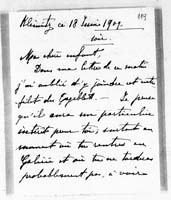 103
ce 18 Juin 1909.
soir
Mon cher enfant,
Dans ma lettre de ce matin
j'ai oublié d'y joindre cet entre
filet du — Je pense
qu'il aura un particulier
intérêt pour toi, surtout au
moment où tu rentres en
Galicie et où tu ne tardera
probablement pas, à